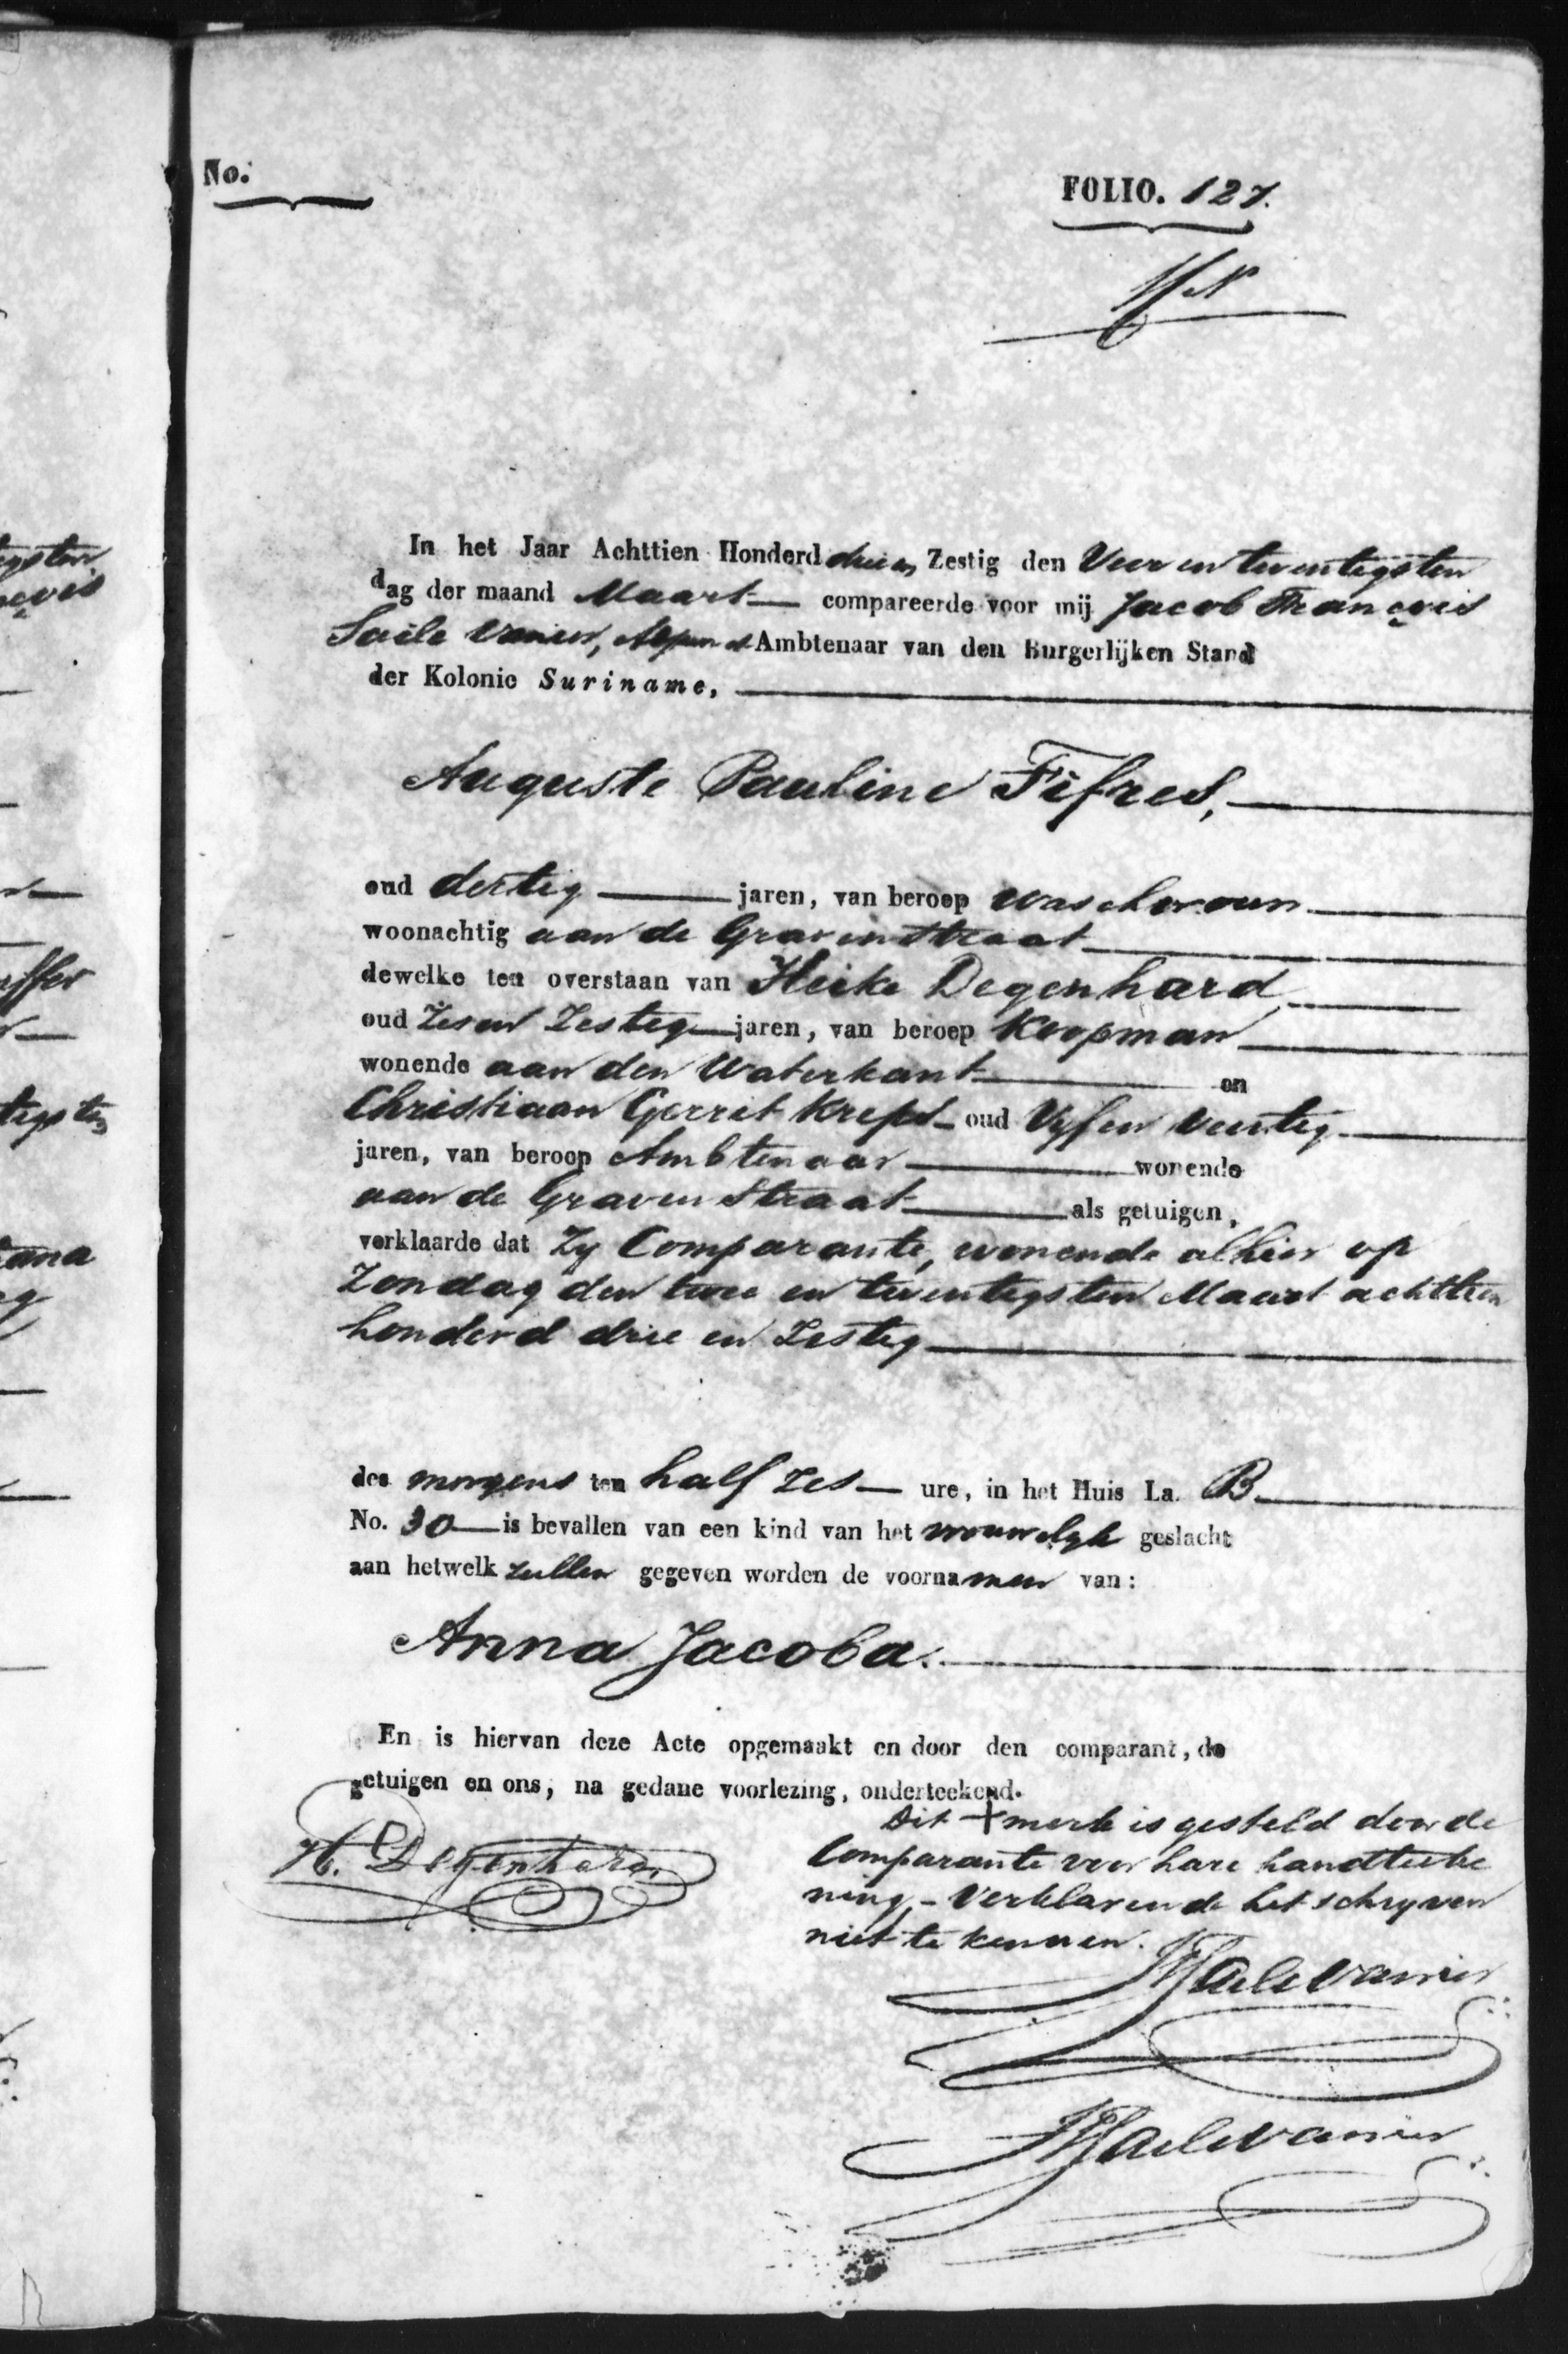 No.
FOLIO. 127.
In het Jaar Achttien Honderd drie en Zestig den Vier en twentigsten
dag der maand Maart compareerde voor mij Jacob François
Saile Vanier, Ambtenaar van den Burgerlijken Stand
der Kolonie Suriname,
Auguste Pauline Fifres,
oud dertig jaren, van beroep waschvrouw
woonachtig aan de Gravenstraat
dewelke ten overstaan van Heike Degenhard,
oud Zes en Zestig jaren, van beroep Koopman
wonende aan den Waterkant en
Christiaan Gerrit Kreps oud Vyf en Veertig
jaren, van beroep Ambtenaar wonende
aan de Gravenstraat als getuigen,
verklaarde dat Zy Comparante, wonende alhier op
Zondag den twee en twentigsten Maart achttien
honderd drie en Zestig
des morgens ten half zes ure, in het Huis La. B.
No. 30 is bevallen van een kind van het vrouwelyk geslacht
aan hetwelk zullen gegeven worden de voornamen van:
Anna Jacoba.
En is hiervan deze Acte opgemaakt en door den comparant, de
getuigen en ons, na gedane voorlezing, onderteekend.
Dit + merk is gesteld door de
Comparante voor hare handteeke
ning, - Verklarende het schryven
niet te kennen.
H. Degenhard